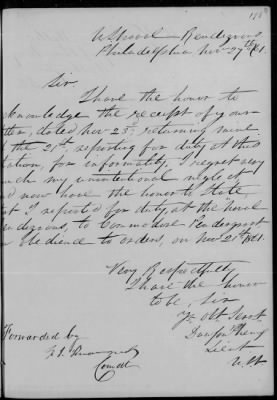 178
U.S. Naval Rendezvous
Philadelphia Nov 27th 1861.
Sir.
I have the honor to
acknowledge the receipt of your
dated Nov 25th, returning mine
of the 21st, reporting for duty at this
station, for informality, I regret very
much my unintentional neglect
and now have the honor to State
that I reported for duty, at the Naval
Rendezvous, to Commodore Pendergrast
in obedience to orders, on Nov 21st 1861.
Very Respectfully
I have the honor
to be, Sir
Yr Obt Servt
Lieut
U.S.N.
Forwarded by
Comdt